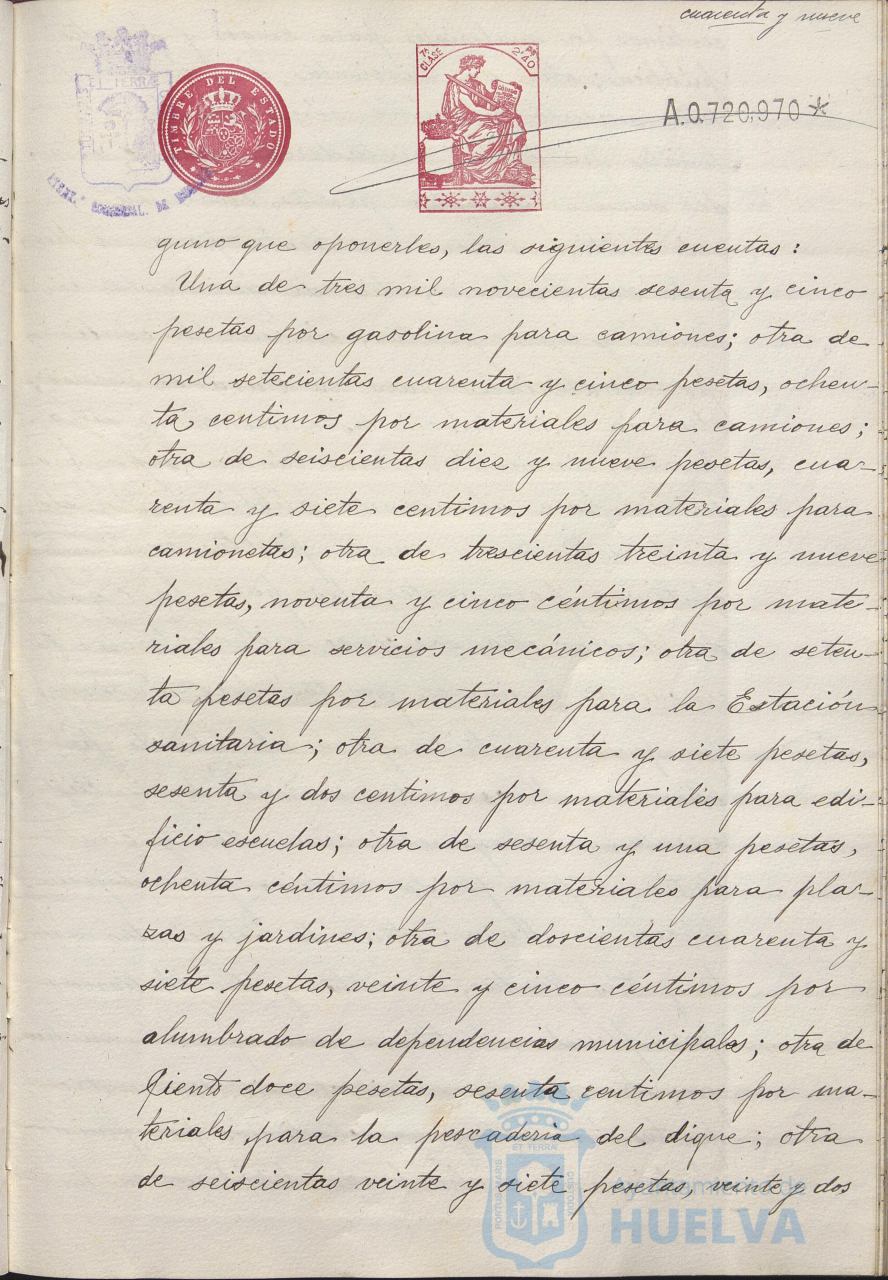 cuarenta y nueve
TIMBRE DEL ESTADO
7ª CLASE
2'40
A.0.720,970*
guno que oponerles, las siguientes cuentas:
Una de tres mil novecientas sesenta y cinco
pesetas por gasolina para camiones; otra de
mil setecientas cuarenta y cinco pesetas, ochen-
ta centimos por materiales para camiones;
otra de seiscientas diez y nueve pesetas, cua-
renta y siete centimos por materiales para
camionetas; otra de trescientas treinta y nueve
pesetas, noventa y cinco céntimos por mate-
riales para servicios mecánicos; otra de seten-
ta pesetas por materiales para la Estación
sanitaria; otra de cuarenta y siete pesetas,
sesenta y dos centimos por materiales para edi-
ficio escuelas; otra de sesenta y una pesetas,
ochenta céntimos por materiales para pla-
zas y jardines; otra de doscientas cuarenta y
siete pesetas, veinte y cinco céntimos por
alumbrado de dependencias municipales; otra de
ciento doce pesetas, sesenta centimos por ma-
teriales para la pescaderia del dique; otra
de seiscientas veinte y siete pesetas, veinte y dos
Ayuntamiento de
HUELVA